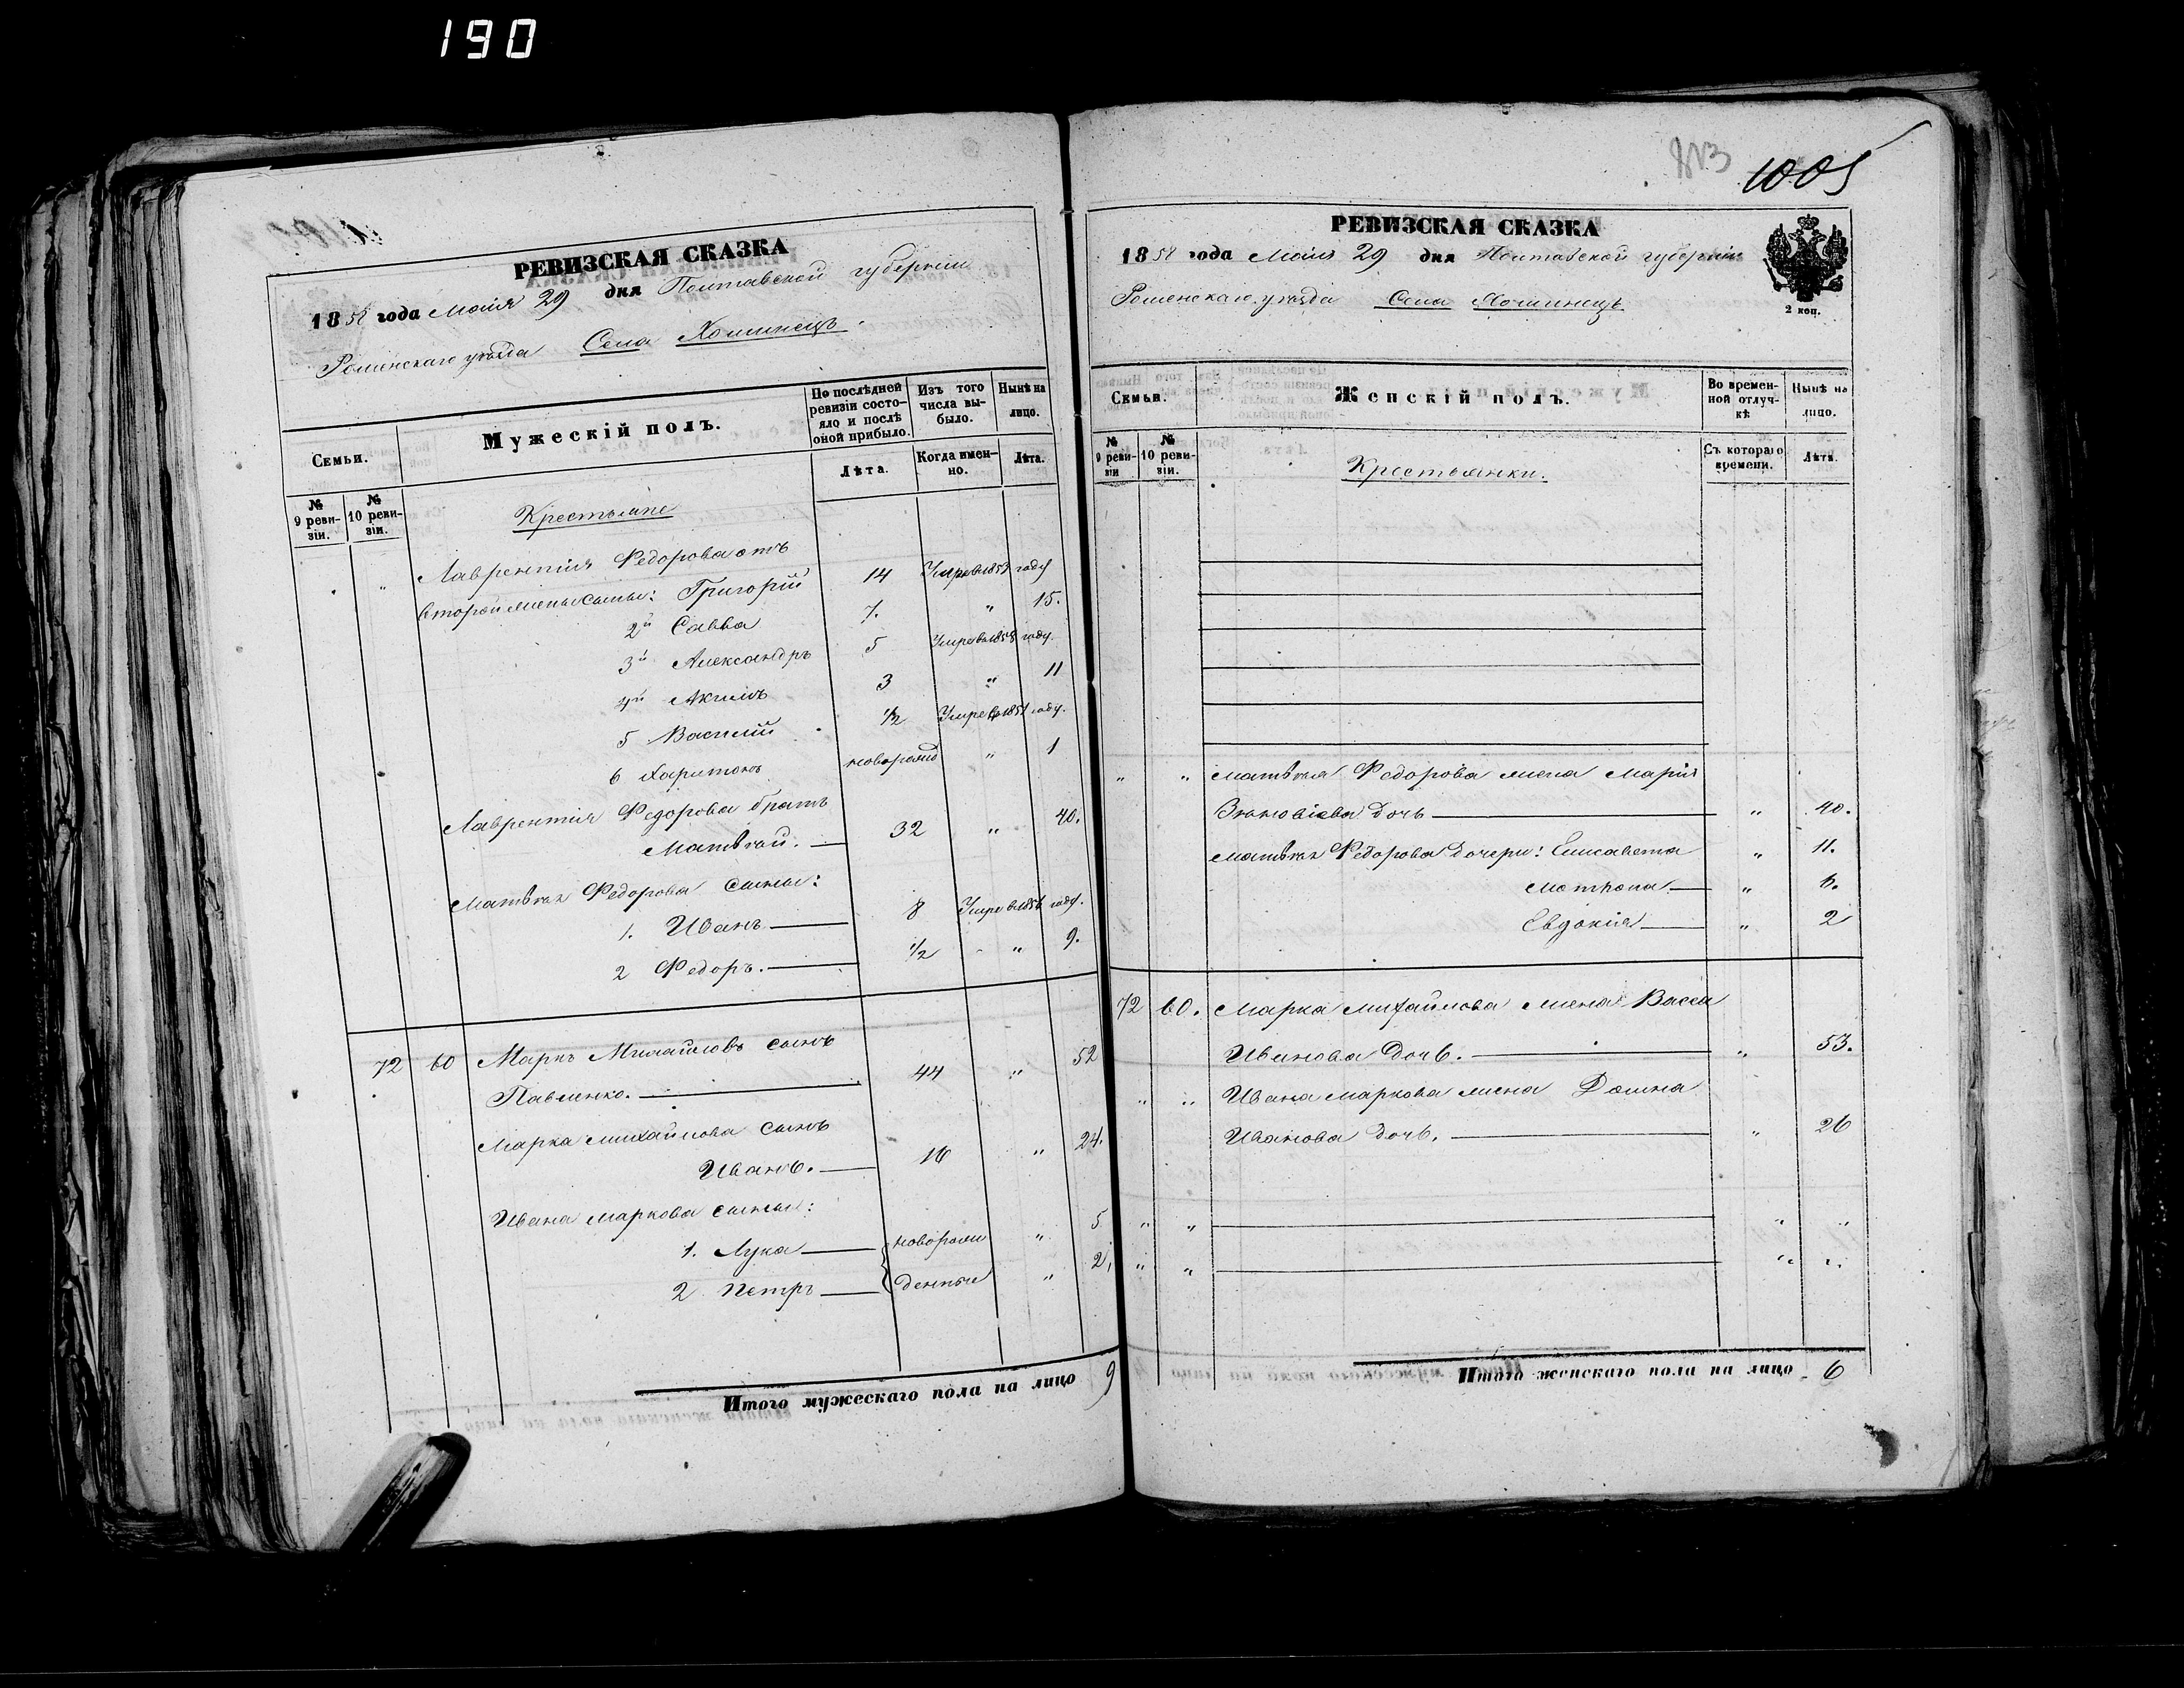 190
РЕВИЗСКАЯ СКАЗКА
1858 года Маія 29 дня Полтавской губерніи
Роменскаго уѣзда Села Хоминецъ.
Семьи.
Мужескій полъ.
По послѣдней ревизіи состояло и послѣ оной прибыло.
Изъ того числа выбыло.
Нынѣ на лицо.
№ 9 ревизіи.
№ 10 ревизіи.
Лѣта.
Когда именно.
Лѣта.
Крестьяне
Лаврентія Федорова отъ
второй жены сыны: Григорій 14 Умре въ 1853 году
2й Савва 7. " 15.
3й Александръ 5 Умре въ 1858 году.
4й Акимъ 3 " 11
5 Василій 1/2 Умре въ 1851 году.
6 Харитонъ новорожд " 1
Лаврентія Федорова братъ
Матвѣй. 32 " 40.
Матвѣя Федорова сыны:
1. Иванъ 8 Умре въ 1856 году.
2 Федоръ. 1/2 " 9.
72 60 Марко Михайловъ сынъ
Павленко. 44 " 52
Марка Михайлова сынъ
Иванъ. 16 " 24.
Ивана Маркова сыны:
1. Лука новорож " 5
2 Петръ денные " 2.
Итого мужескаго пола на лицо 9
1005
РЕВИЗСКАЯ СКАЗКА
1858 года Маія 29 дня Полтавской губерніи
Роменскаго уѣзда Села Хоминецъ
2 коп.
Семьи.
Женскій полъ.
Во временной отлучкѣ
Нынѣ на лицо.
№ 9 ревизіи
№ 10 ревизіи.
Съ котораго времени.
Лѣта.
Крестьянки.
" " Матвѣя Федорова жена Марія
Зѣновіева дочь " 40.
Матвѣя Федорова дочери: Елисавета " 11.
Матрона " 6.
Евдокія " 2
72 60. Марка Михайлова жена Васса
Иванова дочь. " 53.
" " Ивана Маркова жена Домна
Иванова дочь. " 26
" " " "
" " " "
Итого женскаго пола на лицо 6